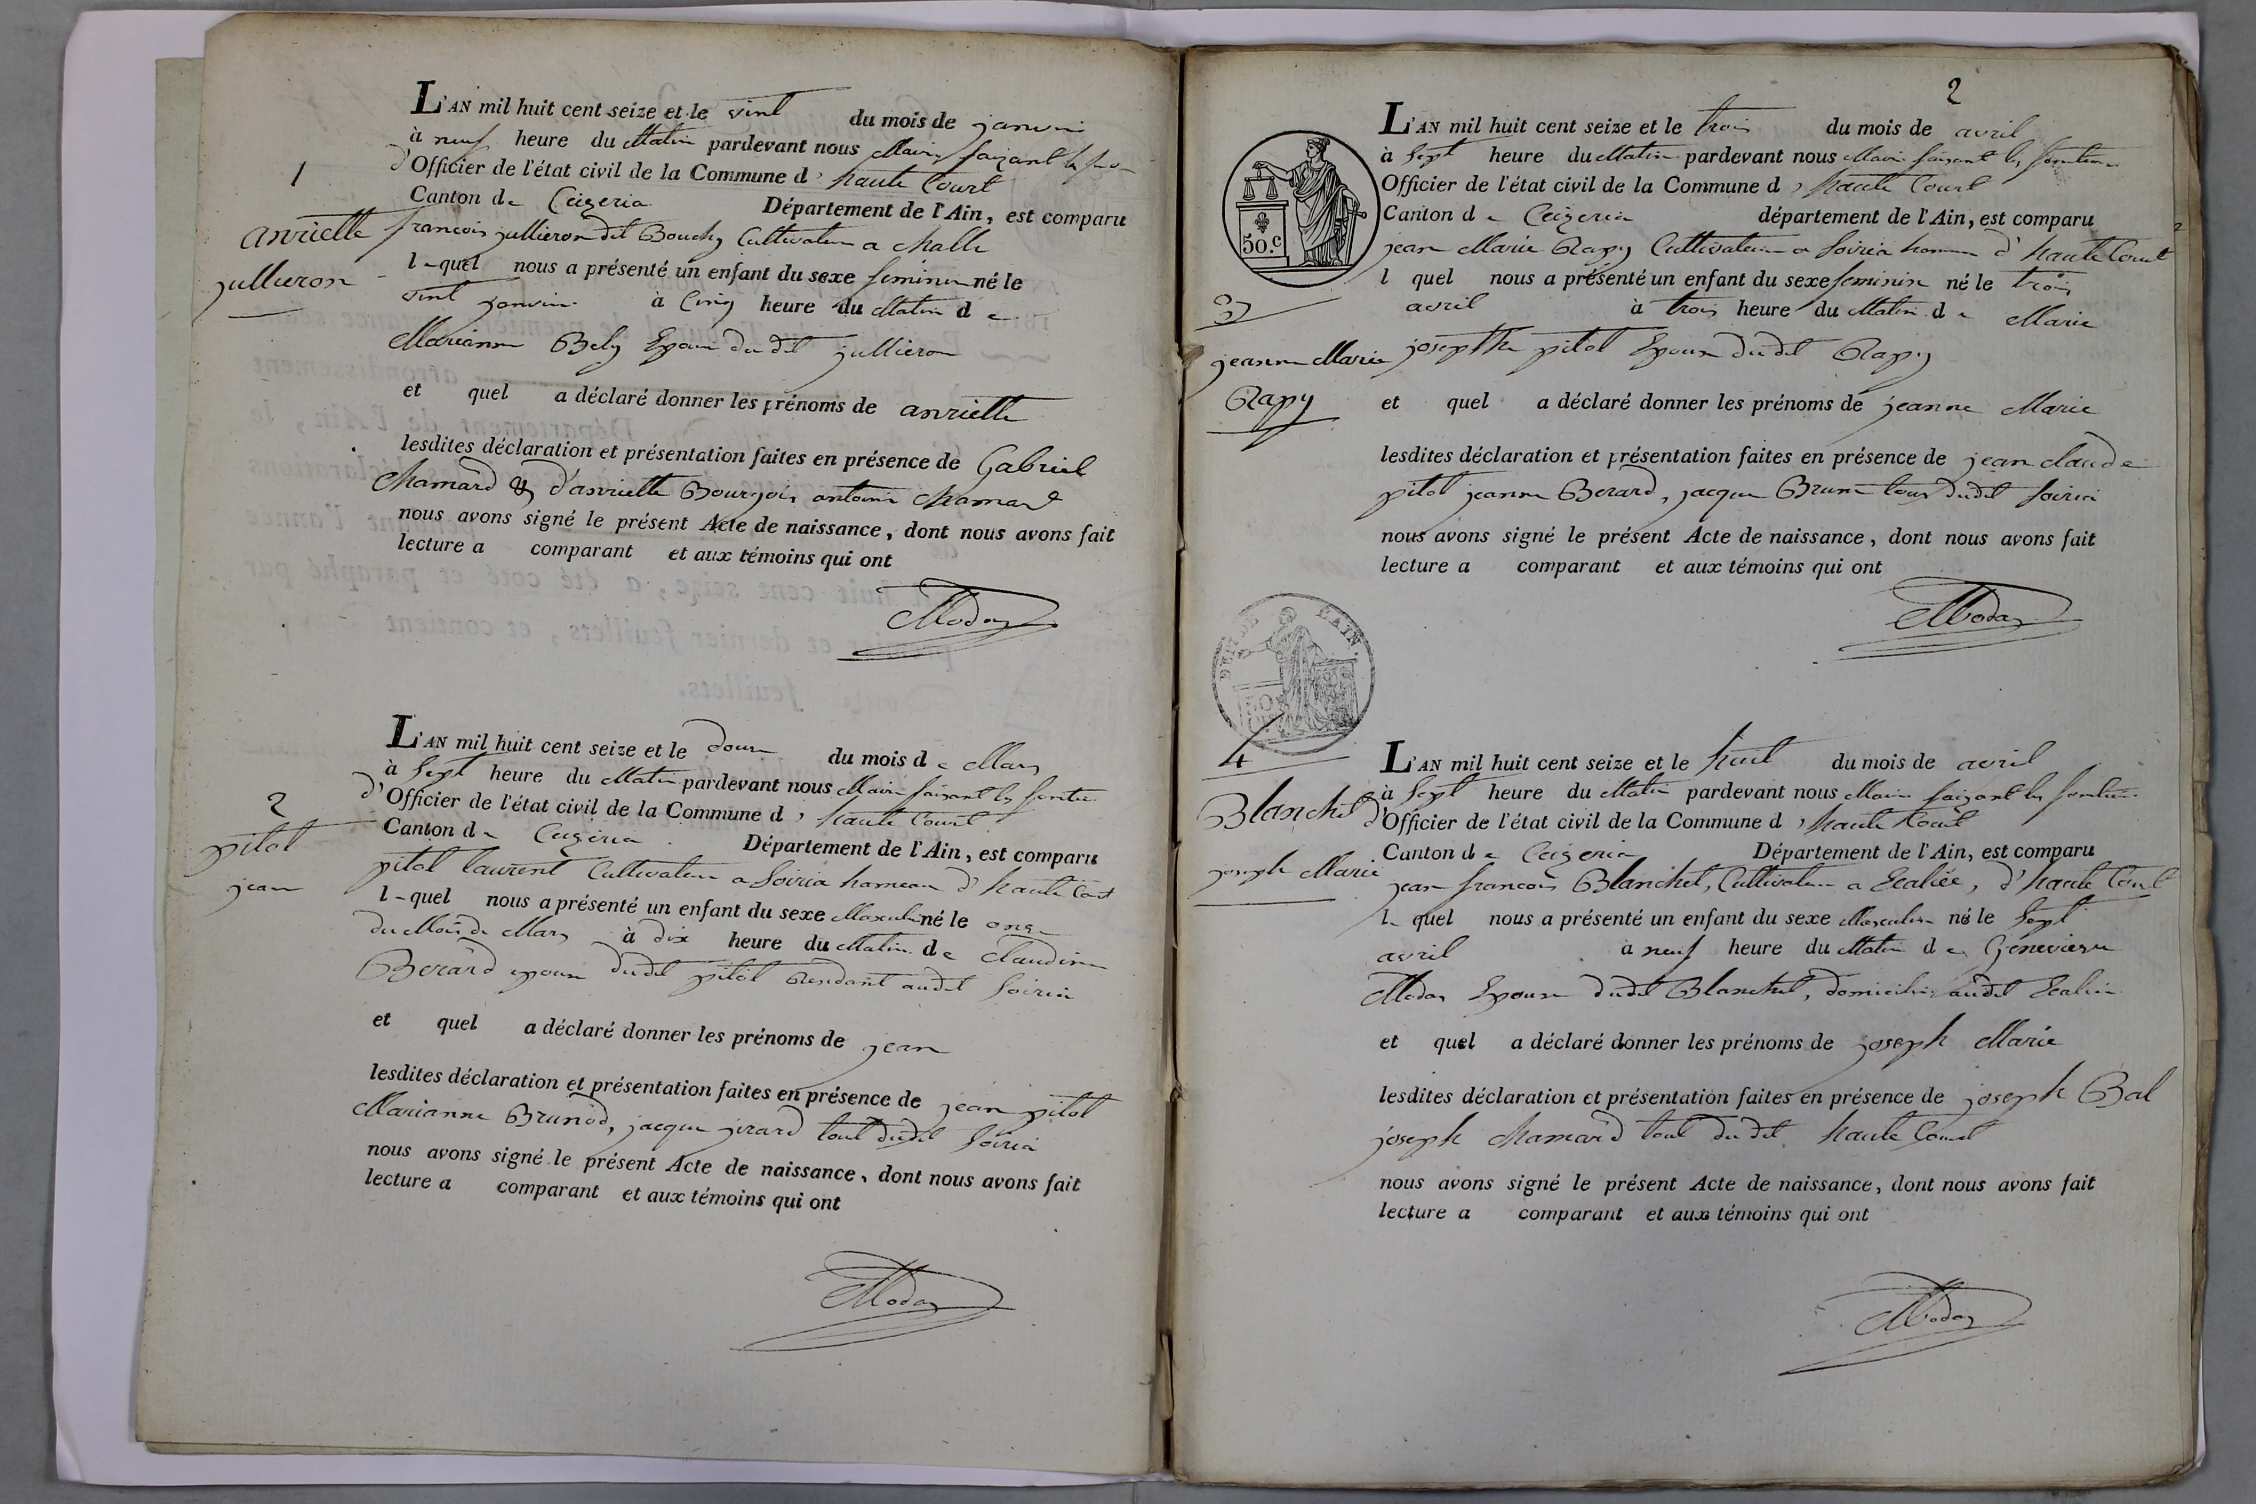 1
anriette
jullieron
L'AN mil huit cent seize et le vint du mois de janvier
à neuf heure du Matin pardevant nous Maire faizant les fon
d'Officier de l'état civil de la Commune d' haute Court
Canton de Ceizeria Département de l'Ain, est comparu
francois jullieron dit Bouchy Cultivateur a Challe
l-quel nous a présenté un enfant du sexe feminin né le
vint janvier à Cinq heure du Matin de
Marianne Bely Epouse du dit jullieron
et quel a déclaré donner les prénoms de anriette
lesdites déclaration et présentation faites en présence de Gabriel
Chamard & d'anriette Bourgois antoine Chamard
nous avons signé le présent Acte de naissance, dont nous avons fait
lecture a comparant et aux témoins qui ont
Modas
2
pitol
jean
L'AN mil huit cent seize et le douze du mois de Mars
à Sept heure du Matin pardevant nous Maire faizant les
d'Officier de l'état civil de la Commune d' haute Court
Canton de Ceizeria Département de l'Ain, est comparu
pitol laurent Cultivateur a Soiria hameau d'haute Court
l-quel nous a présenté un enfant du sexe Masculin né le onze
du Mois de Mars à dix heure du Matin de Claudine
Berard epouse dudit pitol Residant audit Soiria
et quel a déclaré donner les prénoms de jean
lesdites déclaration et présentation faites en présence de jean pitol
Marianne Brunod, jacque jirard tout dudit Soiria
nous avons signé le présent Acte de naissance, dont nous avons fait
lecture a comparant et aux témoins qui ont
Modas
2
50.c
3
jeanne Marie
Rapy
L'AN mil huit cent seize et le trois du mois de avril
à Sept heure du Matin pardevant nous Maire faizant les
Officier de l'état civil de la Commune d' haute Court
Canton de Ceizeria département de l'Ain, est comparu
jean Marie Rapy Cultivateur a Soiria d'haute Court
l quel nous a présenté un enfant du sexe feminin né le trois
avril à trois heure du Matin de Marie
josepthe pitol Epouse dudit Rapy
et quel a déclaré donner les prénoms de jeanne Marie
lesdites déclaration et présentation faites en présence de jean claude
pitol jeanne Berard, jacque tous dudit Soiria
nous avons signé le présent Acte de naissance, dont nous avons fait
lecture a comparant et aux témoins qui ont
Modas
4
Blanchet
joseph Marie
L'AN mil huit cent seize et le huit du mois de avril
à Sept heure du Matin pardevant nous Maire faizant les
d'Officier de l'état civil de la Commune d' haute Court
Canton de Ceizeria Département de l'Ain, est comparu
jean francois Blanchet, Cultivateur a d'haute Court
l- quel nous a présenté un enfant du sexe Masculin né le Sept
avril à neuf heure du Matin de Genevieve
Modas Epouse dudit Blanchet, audit
et quel a déclaré donner les prénoms de joseph Marie
lesdites déclaration et présentation faites en présence de joseph Bal
joseph Chamard tout du dit haute Court
nous avons signé le présent Acte de naissance, dont nous avons fait
lecture a comparant et aux témoins qui ont
Modas